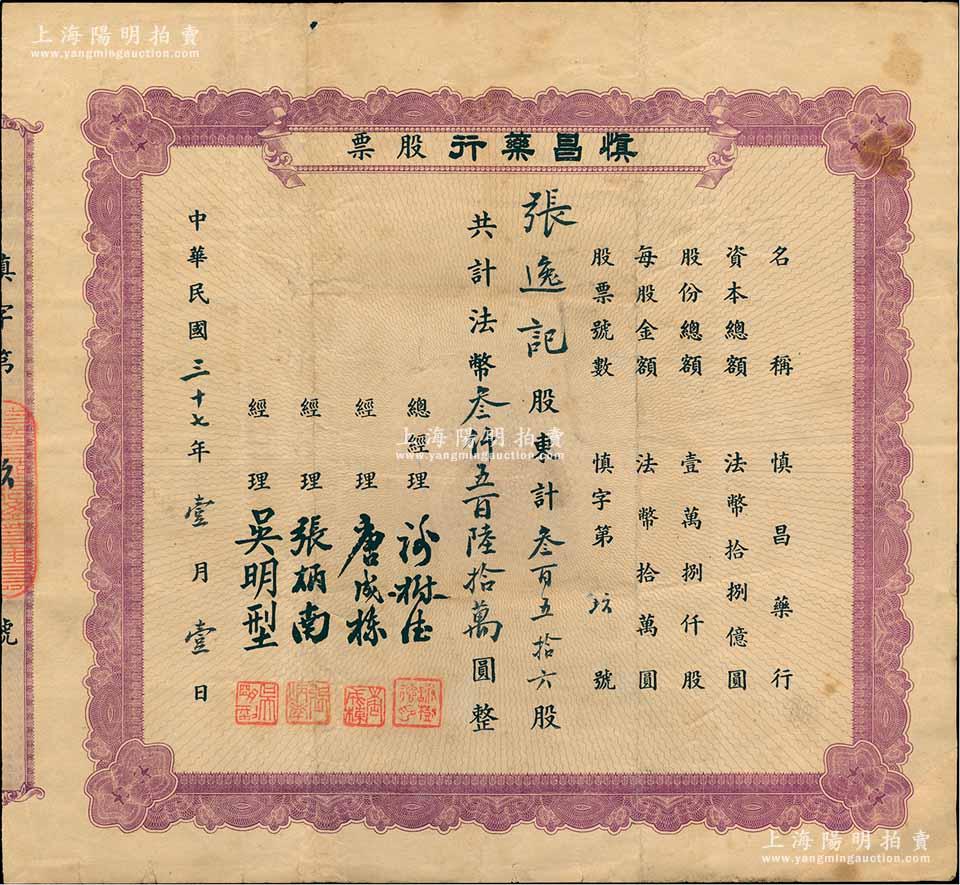 上海陽明拍賣
www.yangmingauction.com
慎昌藥行股票
名稱 慎昌藥行
資本總額 法幣拾捌億圓
股份總額 壹萬捌仟股
每股金額 法幣拾萬圓
股票號數 慎字第 號
張逸記 股東計叁百五拾六股
共計法幣叁仟五百陸拾萬圓整
總經理
經理 唐成棟
經理 張炳南
經理 吳明型
中華民國三十七年壹月壹日
慎字第 號
上海陽明拍賣
www.yangmingauction.com
上海陽明拍賣
www.yangmingauction.com